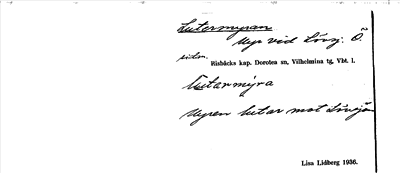 Lutermyran
Myr vid Lövsj. Ö.
sidan.
Risbäcks kap. Dorotea sn, Vilhelmina tg. Vbt. l.
lutarmỳra
Myren lutar mot Lövsjön
Lisa Lidberg 1936.